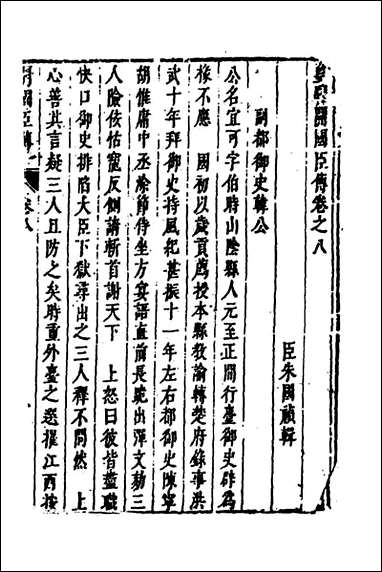 皇明開國臣傳卷之八
臣朱國禎輯
副都御史韓公
公名宜可字伯時山陰縣人元至正間行臺御史辟為
椽不應　國初以歲貢薦授本縣教諭轉楚府錄事洪
武十年拜御史持風紀甚振十一年左右都御史陳寧
胡惟庸中丞涂節侍坐方宴語直前長跪出彈文劾三
人險佞怙寵反側請斬首謝天下　上怒曰彼皆盡職
快口御史排陷大臣下獄尋出之三人釋不問然　上
心善其言疑三人且防之矣時重外臺之選擢江西按
開國臣傳
卷八